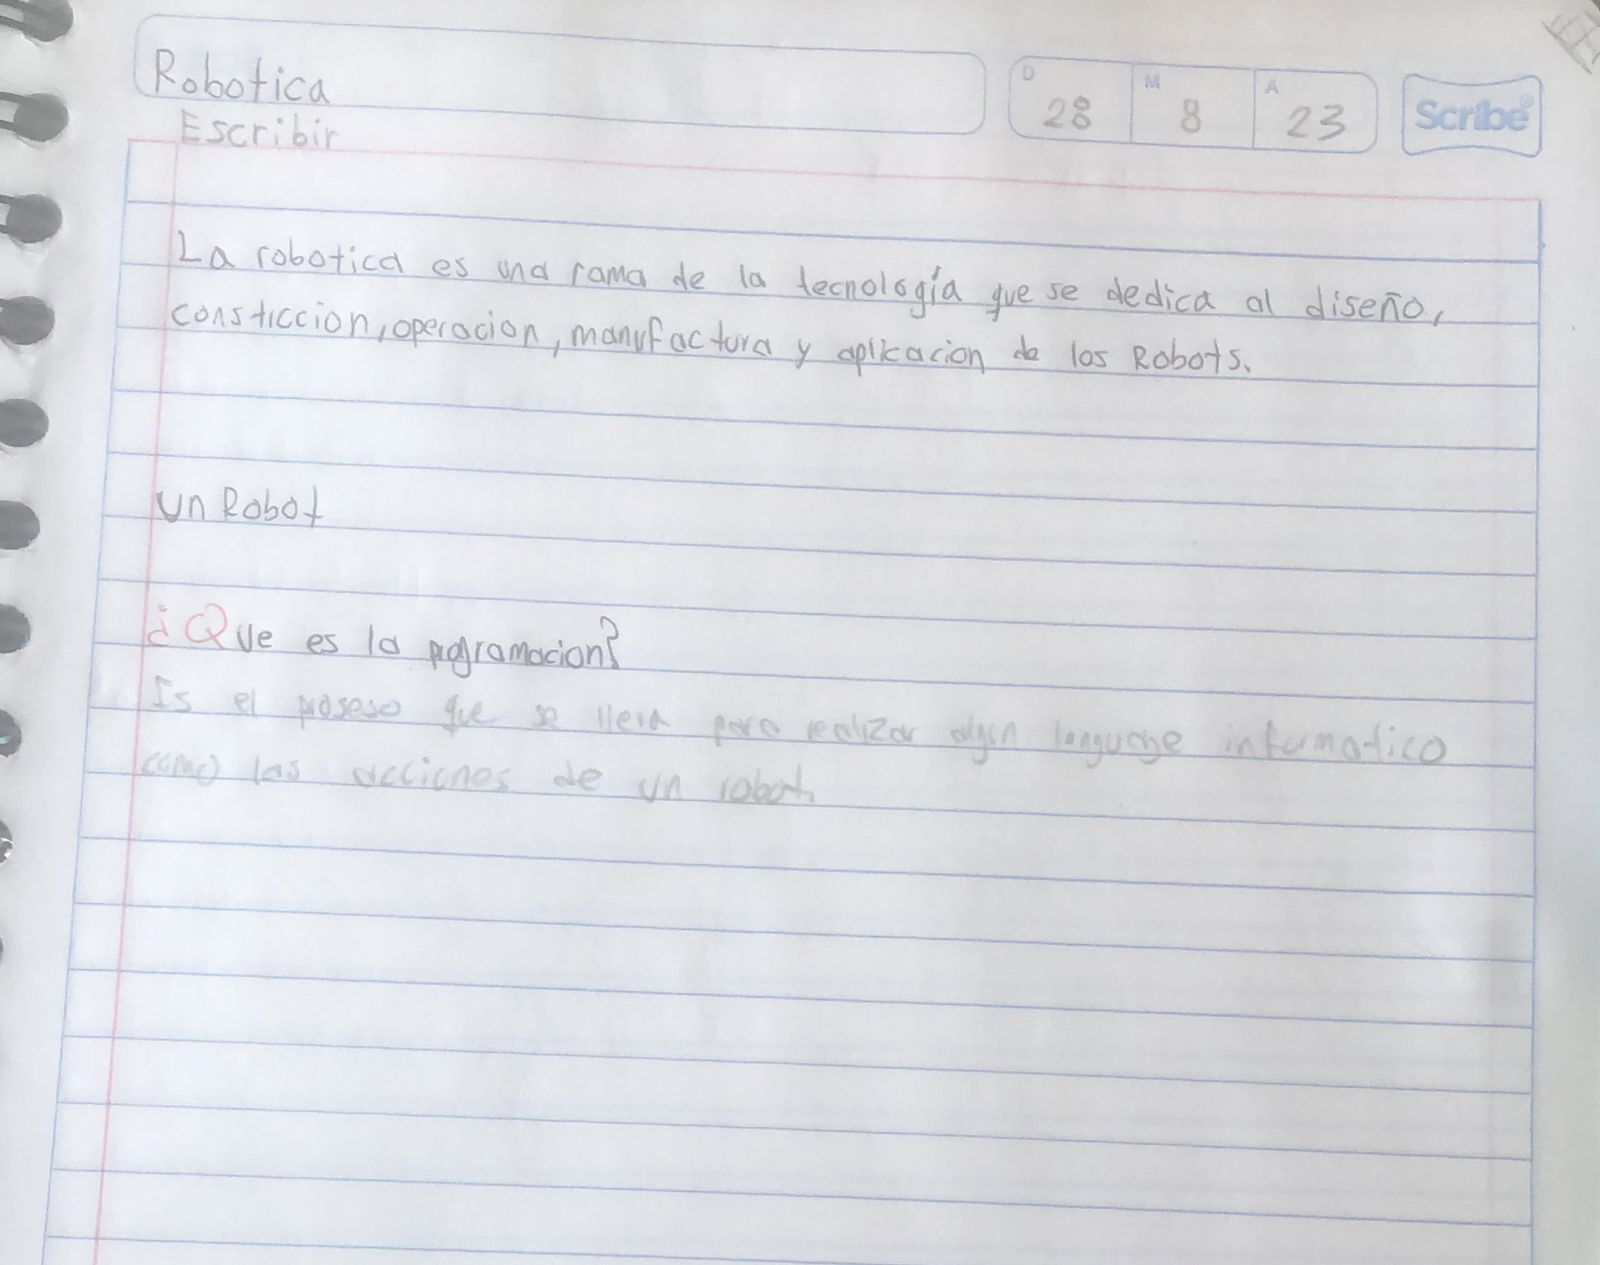 Robotica
Escribir
D 28 M 8 A 23
Scribe®
La robotica es una rama de la tecnología que se dedica al diseño,
consticcion, operacion, manufactura y aplicacion de los Robots.
un Robot
¿Que es la programacion?
Is el proseso que se lleva para realizar algun languaje informatico
como las acciones de un robot.